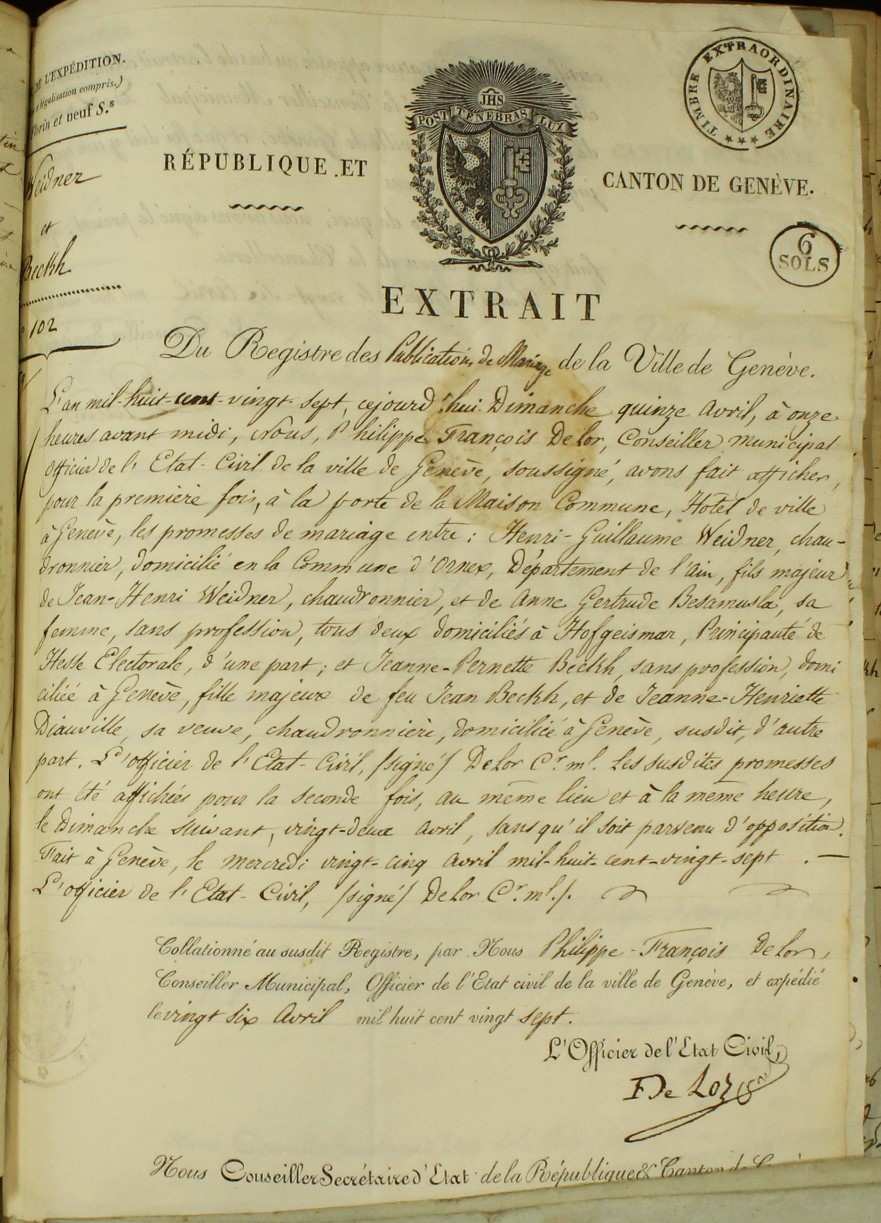 DE L'EXPÉDITION.
légalisation compris.)
florin et neuf S.s
Weidner
et
Beckh
102
RÉPUBLIQUE ET
JHS
POST TENEBRAS LUX
CANTON DE GENÈVE.
TIMBRE EXTRAORDINAIRE
6
SOLS
EXTRAIT
Du Registre des Publications de Mariage de la Ville de Genève.
L'an mil-huit-cent-vingt-sept, cejourd'hui Dimanche quinze Avril, à onze
heures avant midi, Nous, Philippe François Delor, Conseiller municipal
Officier de l'Etat-Civil de la ville de Genève, soussigné, avons fait afficher,
pour la première fois, à la porte de la Maison Commune, Hotel de ville
à Genève, les promesses de mariage entre : Henri-Guillaume Weidner, chau-
dronnier, domicilié en la Commune d'Ornex, Département de l'Ain, fils majeur
de Jean-Henri Weidner, chaudronnier, et de Anne Gertrude Besamusla, sa
femme, sans profession, tous deux domiciliés à Hofgeismar, Principauté de
Hesse Electorale, d'une part ; et Jeanne-Pernette Beckh, sans profession, domi
ciliée à Genève, fille majeure de feu Jean Beckh, et de Jeanne-Henriette
Diauville, sa veuve, chaudronnière, domiciliée à Genève, susdit, d'autre
part. L'officier de l'Etat-Civil, /signé/ Delor C.r m.l. Les susdites promesses
ont été affichées pour la seconde fois, au même lieu et à la même heure,
le Dimanche suivant, vingt-deux avril, sans qu'il soit parvenu d'opposition.
Fait à Genève, le mercredi vingt-cinq avril mil-huit-cent-vingt-sept . —
L'officier de l'Etat-Civil, /signé/ Delor C.r m.l.
Collationné au susdit Registre, par Nous Philippe-François Delor,
Conseiller Municipal, Officier de l'Etat civil de la ville de Genève, et expédié
le vingt six Avril mil huit cent vingt sept.
L'Officier de l'Etat Civil,
F De Lor
Nous Conseiller Secrétaire d'Etat de la République & Canton de